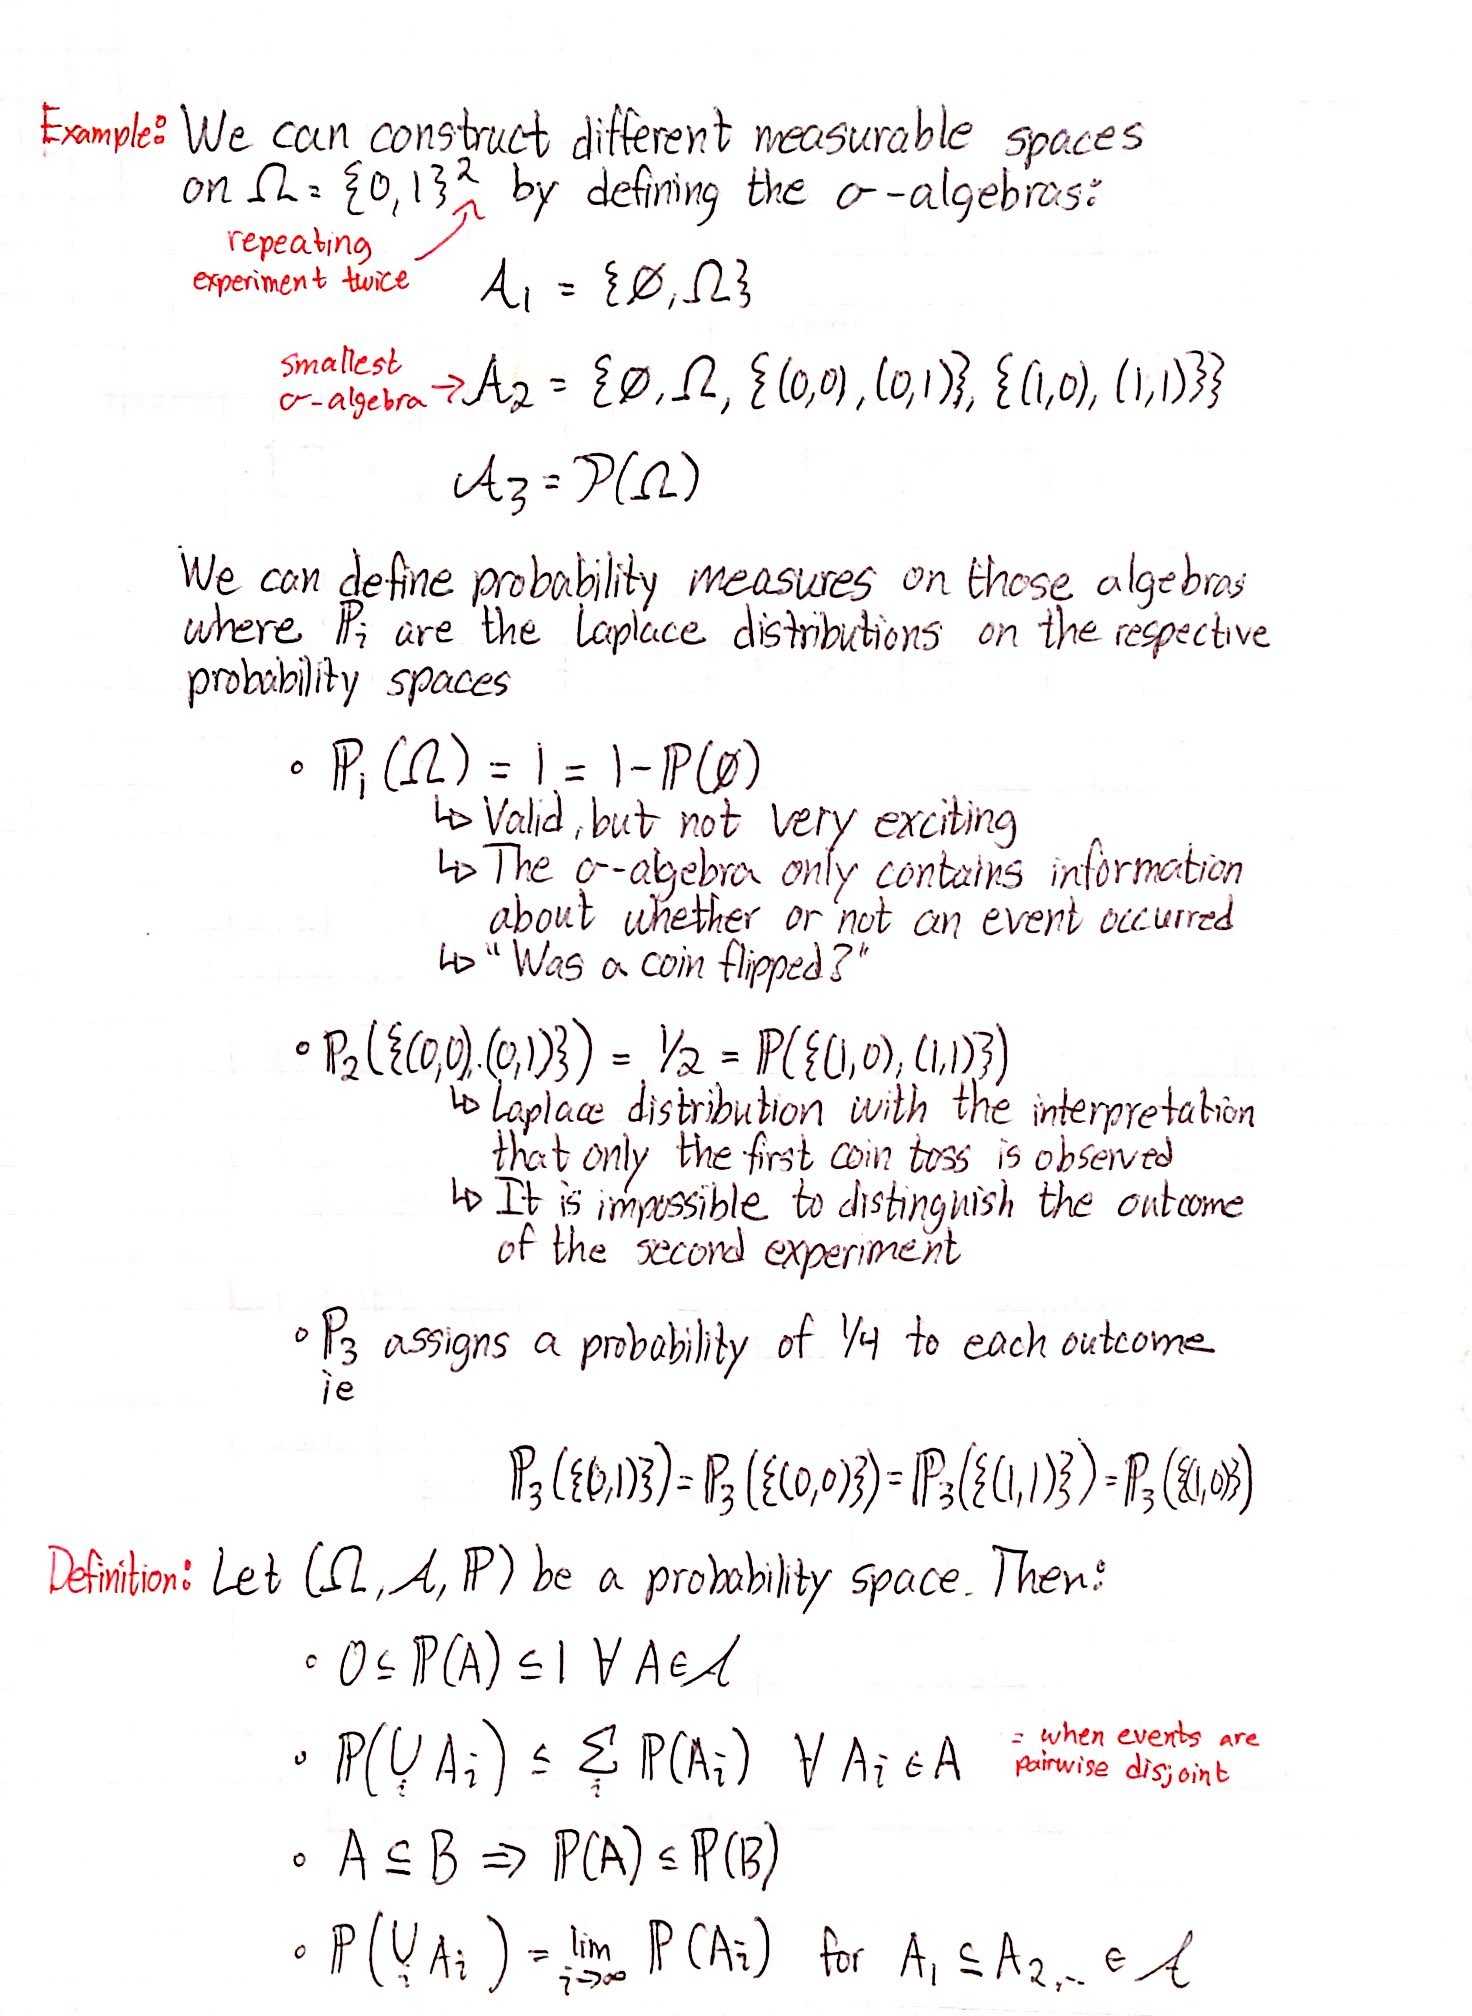 Example: We can construct different measurable spaces
on Ω = {0,1}² by defining the σ-algebras:
repeating
experiment twice
A₁ = {∅,Ω}
smallest
σ-algebra → A₂ = {∅,Ω, {(0,0),(0,1)}, {(1,0),(1,1)}}
A₃ = P(Ω)
We can define probability measures on those algebras
where ℙᵢ are the Laplace distributions on the respective
probability spaces
∘ ℙ₁(Ω) = 1 = 1-ℙ(∅)
↳ Valid, but not very exciting
↳ The σ-algebra only contains information
about whether or not an event occurred
↳ "Was a coin flipped?"
∘ ℙ₂({(0,0),(0,1)}) = 1/2 = ℙ({(1,0),(1,1)})
↳ Laplace distribution with the interpretation
that only the first coin toss is observed
↳ It is impossible to distinguish the outcome
of the second experiment
∘ ℙ₃ assigns a probability of 1/4 to each outcome
ie
ℙ₃({(0,1)}) = ℙ₃({(0,0)}) = ℙ₃({(1,1)}) = ℙ₃({(1,0)})
Definition: Let (Ω, A, ℙ) be a probability space. Then:
∘ 0 ≤ ℙ(A) ≤ 1 ∀ A ∈ A
∘ ℙ(⋃ᵢ Aᵢ) ≤ Σᵢ ℙ(Aᵢ) ∀ Aᵢ ∈ A = when events are
pairwise disjoint
∘ A ⊆ B ⇒ ℙ(A) ≤ ℙ(B)
∘ ℙ(⋃ᵢ Aᵢ) = lim i→∞ ℙ(Aᵢ) for A₁ ⊆ A₂,... ∈ A